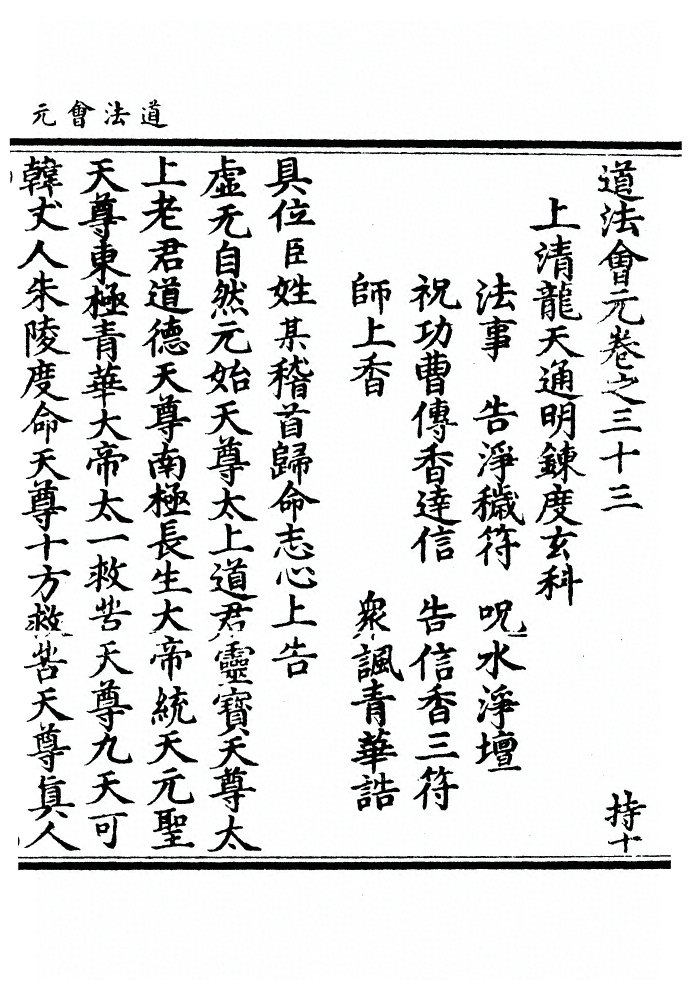 道法會元
道法會元卷之三十三　持十
上清龍天通明鍊度玄科
法事　告淨穢符　呪水淨壇
祝功曹傳香達信　告信香三符
師上香　衆諷青華誥
具位臣姓某稽首歸命志心上告
虛无自然元始天尊太上道君靈寶天尊太
上老君道德天尊南極長生大帝統天元聖
天尊東極青華大帝太一救苦天尊九天可
韓丈人朱陵度命天尊十方救苦天尊眞人